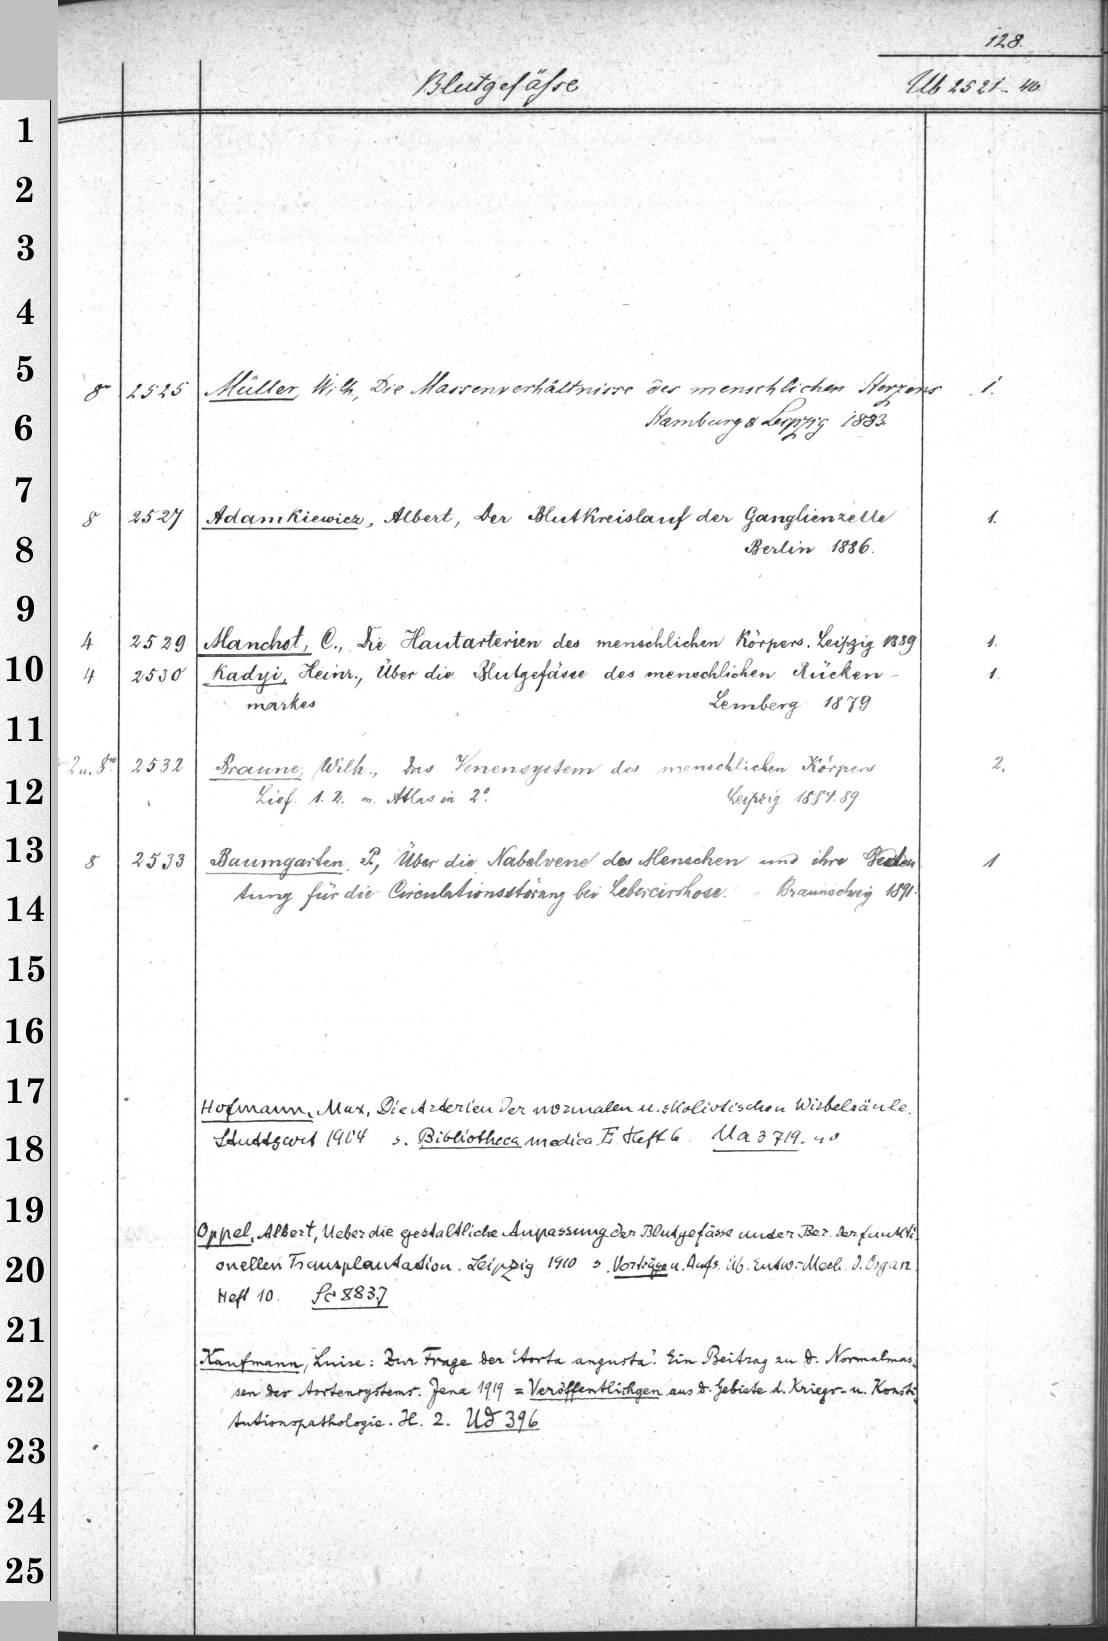 128.
Blutgefäße Ub 2521-40
1
2
3
4
5
8 2525 Müller, Wilh., Die Massenverhältnisse des menschlichen Herzens 1.
6 Hamburg & Leipzig 1883.
7
8 2527 Adamkiewicz, Albert, Der Blutkreislauf der Ganglienzelle 1.
8 Berlin 1886.
9
4 2529 Manchot, C., Die Hautarterien des menschlichen Körpers. Leipzig 1889 1.
10
4 2530 Kadyi, Heinr., Über die Blutgefässe des menschlichen Rücken- 1.
markes Lemberg 1879
11
2 u. 8° 2532 Braune, Wilh., Das Venensystem des menschlichen Körpers 2.
12 Lief. 1. 2. m. Atlas in 2°. Leipzig 1884.89
13
8 2533 Baumgarten, P., Über die Nabelvene des Menschen und ihre Bedeu 1
tung für die Circulationsstörung bei Lebercirrhose. Braunschweig 1891.
14
15
16
17
Hofmann, Max, Die Arterien der normalen u. skoliotischen Wirbelsäule.
18 Stuttgart 1904 s. Bibliotheca medica E. Heft 6. Ua 3719. 40
19
Oppel, Albert, Ueber die gestaltliche Anpassung der Blutgefässe unter Ber. der funkti
20 onellen Transplantation. Leipzig 1910 s. Vorträge u. Aufs. üb. Entw.-Mech. d. Organ.
Heft 10. Sc 8837
21
Kaufmann, Luise: Zur Frage der "Aorta angusta". Ein Beitrag zu d. Normalmas-
22 sen des Aortensystems. Jena 1919 = Veröffentlichgen aus d. Gebiete d. Kriegs- u. Konsti-
tutionspathologie. H. 2. Ud 396
23
24
25